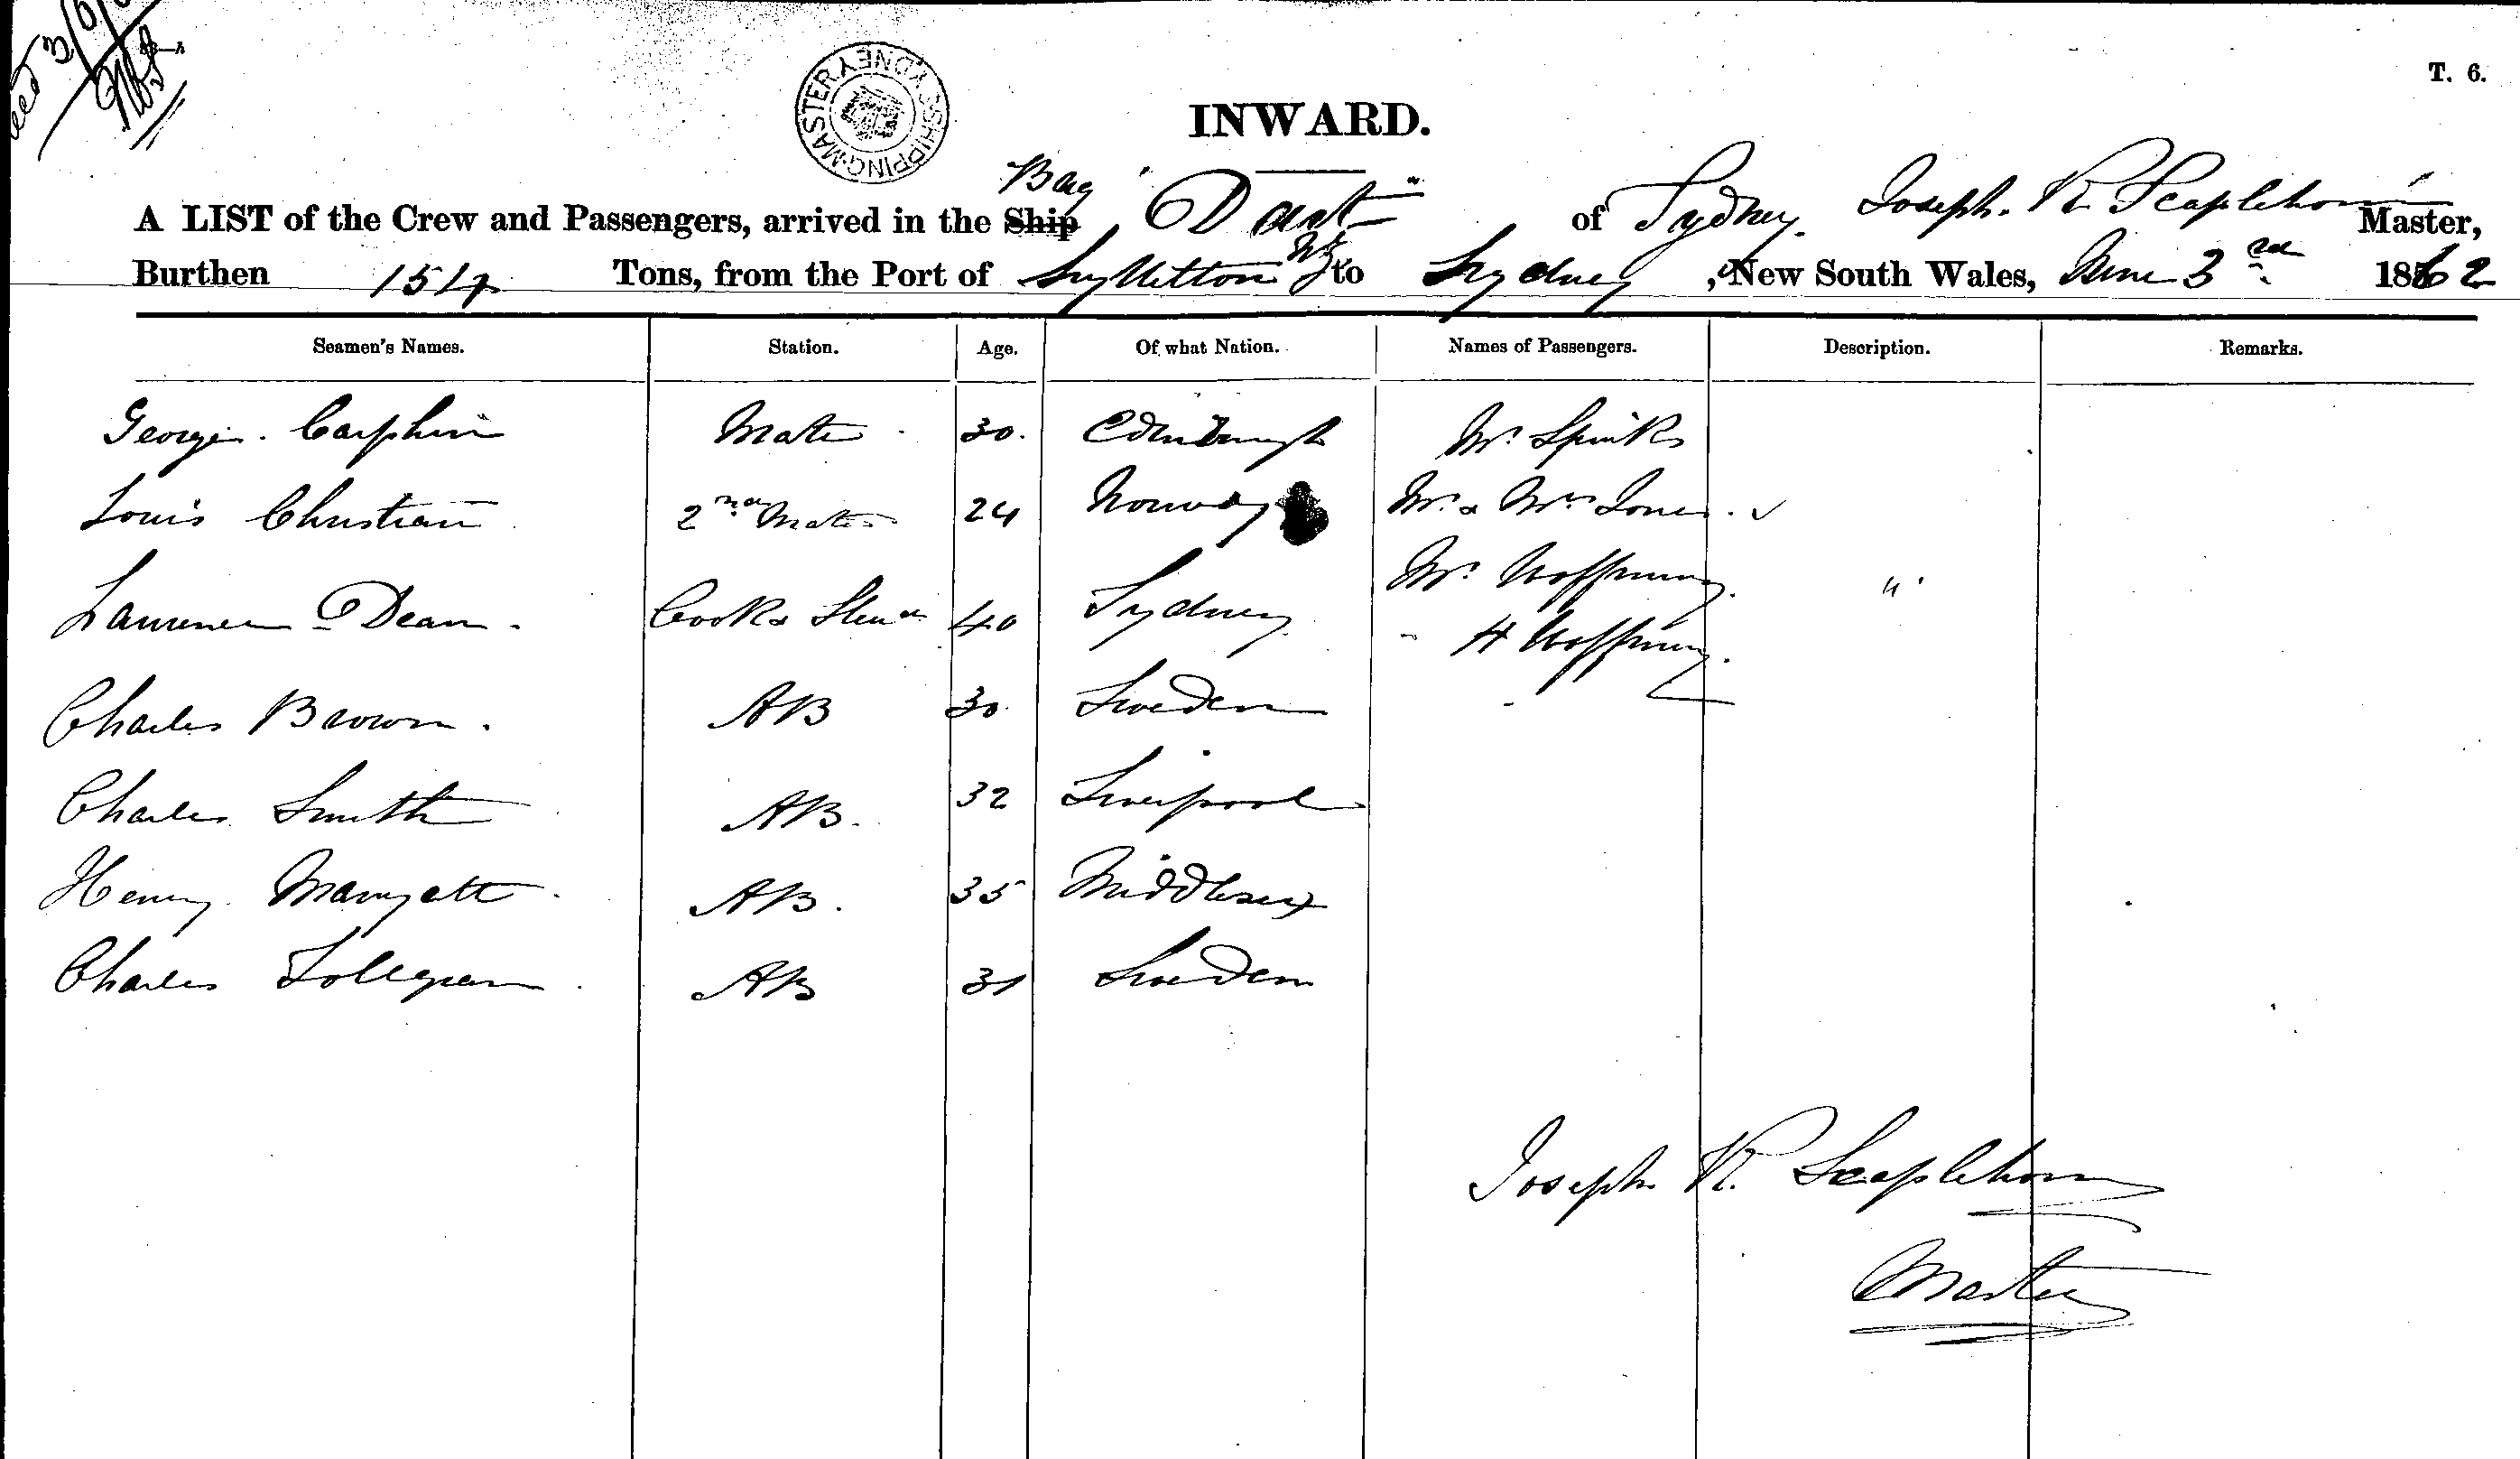 T. 6.
SHIPPING MASTER SYDNEY
INWARD.
A LIST of the Crew and Passengers, arrived in the Ship Brig "Dart" of Sydney. Joseph. R. Scaplehorn Master,
Burthen 154 Tons, from the Port of Lyttelton NZ to Sydney, New South Wales, June 3rd 1862
Seamen's Names. Station. Age. Of what Nation. Names of Passengers. Description. Remarks.
George. Carphin Mate 30. Edinburgh Mr. Spinks
Louis Christian 2nd Mate 24 Norway Mr. & Mrs Jones.
Laurence Dean. Cook & Stewd 40 Sydney Mr.
" H
Charles Brown. AB 30. Sweden
Charles Smith AB. 32 Liverpool
Henry. Marryatt. AB. 35 Middlesex
Charles AB 31 Sweden
Joseph R. Scaplehorn
Master